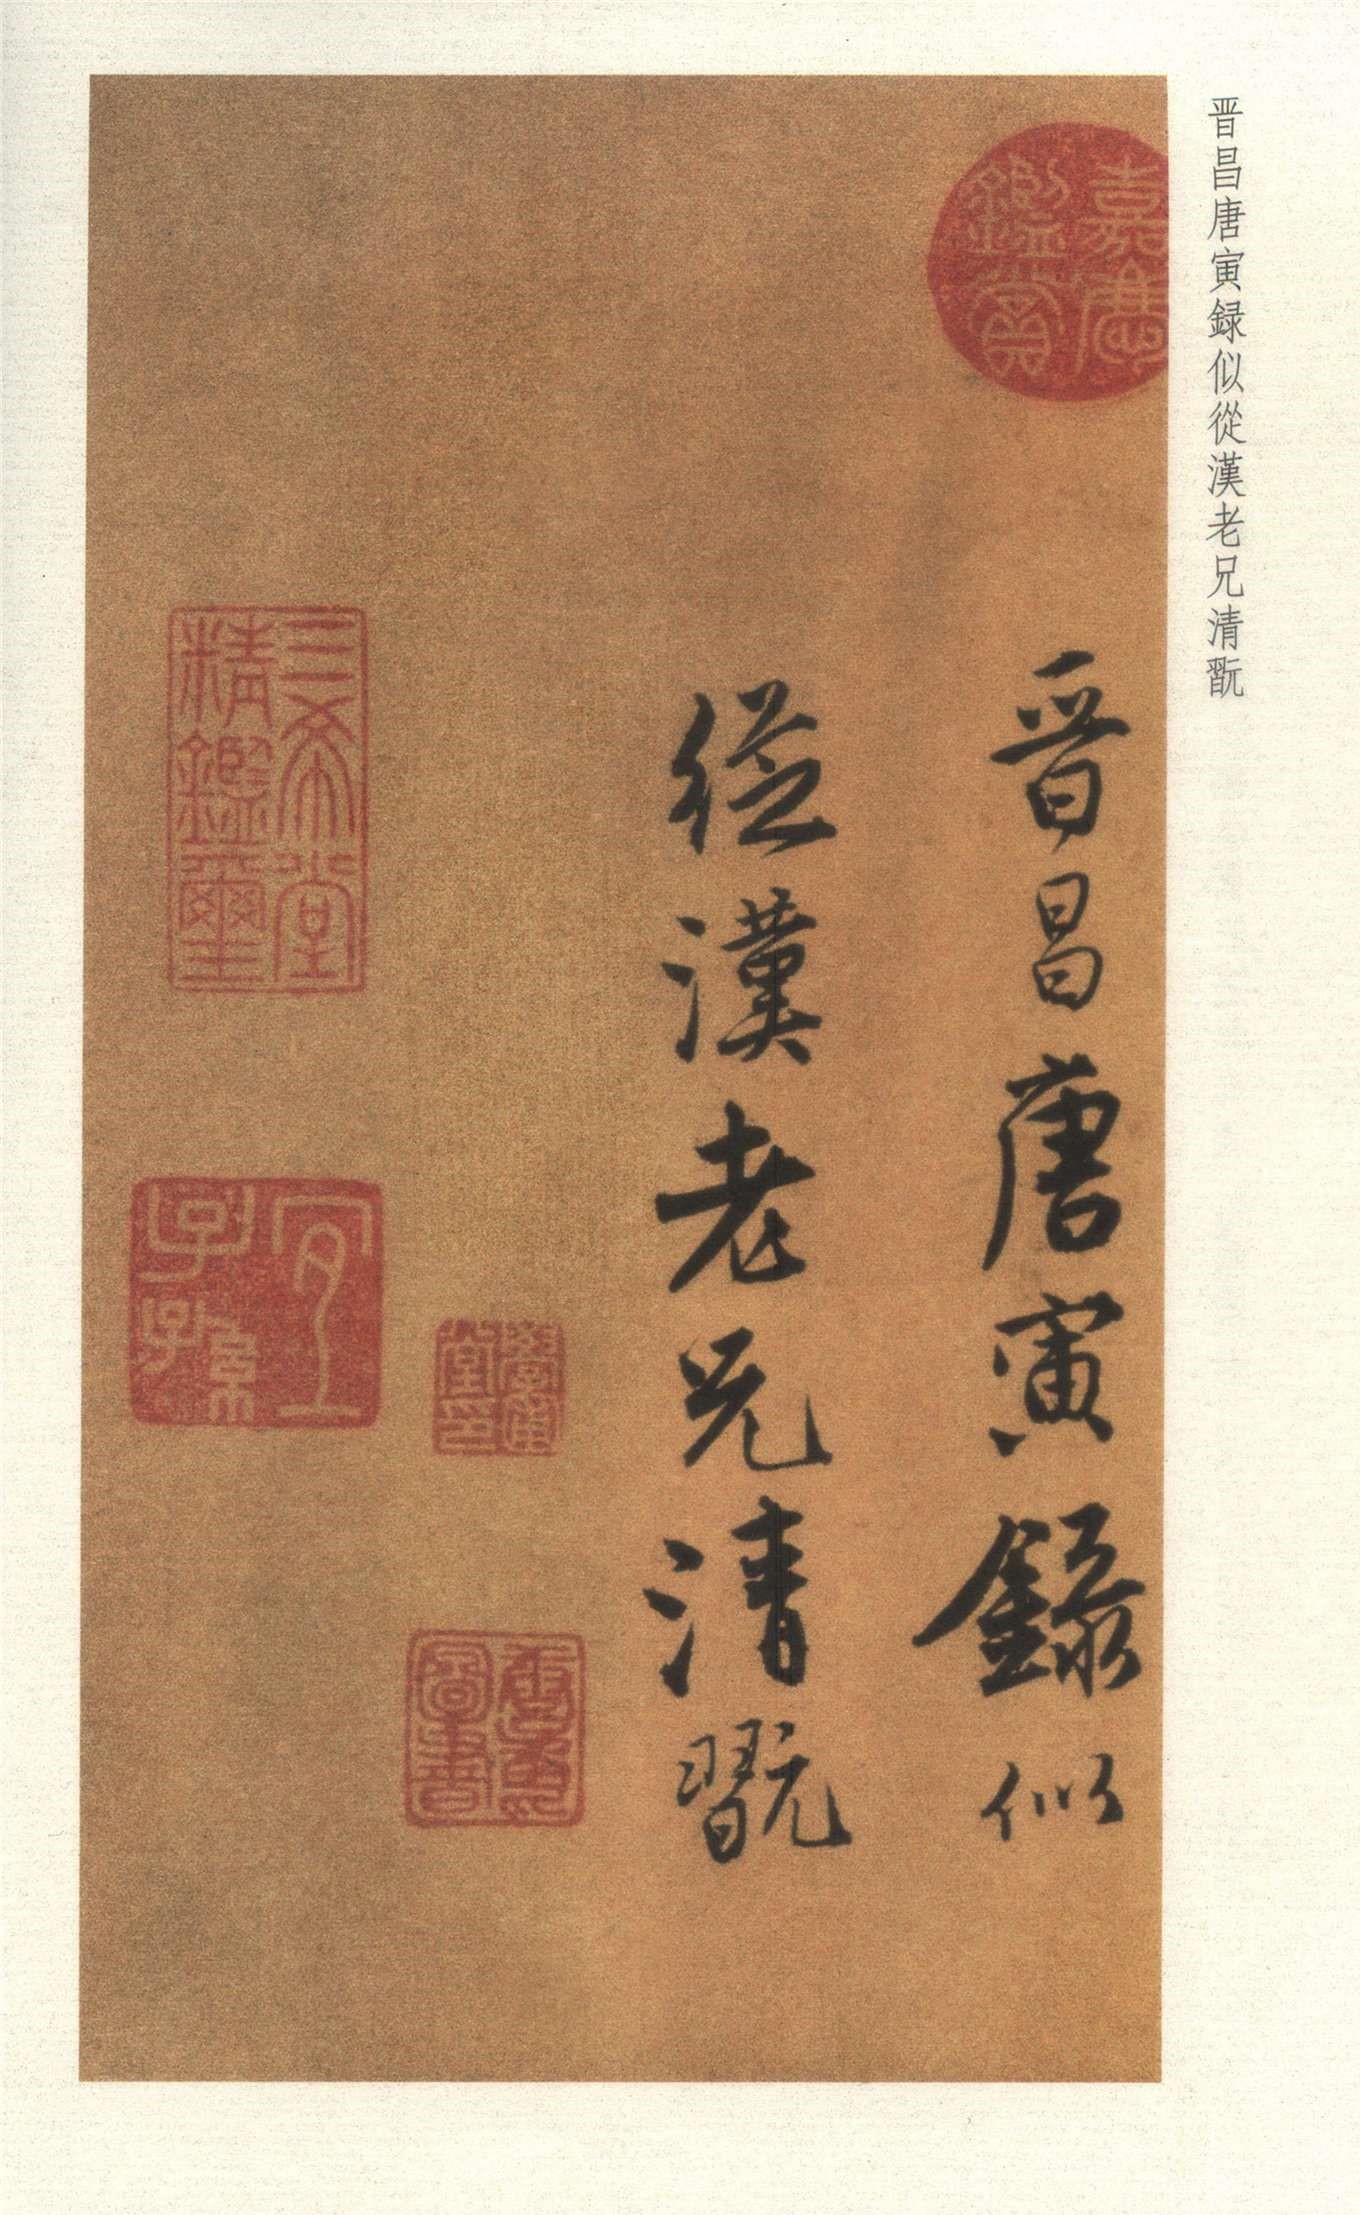 晋昌唐寅録似從漢老兄清翫
嘉慶
鑑賞
晋昌唐寅録似
從漢老兄清翫
三希堂
精鑑璽
宜
子孫
學圃
堂印